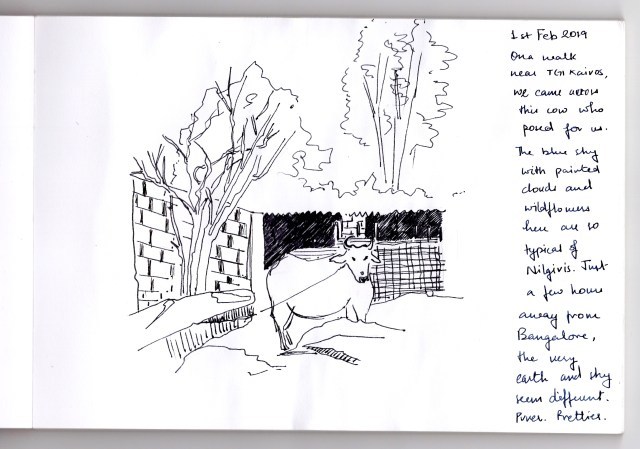 1st Feb 2019
On a walk
near
we came across
this cow who
posed for us.
The blue sky
with painted
clouds and
wildflowers
here are so
typical of
Nilgiris. Just
a few hours
away from
Bangalore,
the very
earth and sky
seem different.
Purer. Prettier.